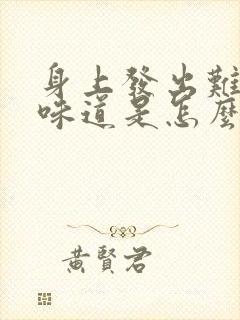 身上發出難
味道是怎麼
黃賢君